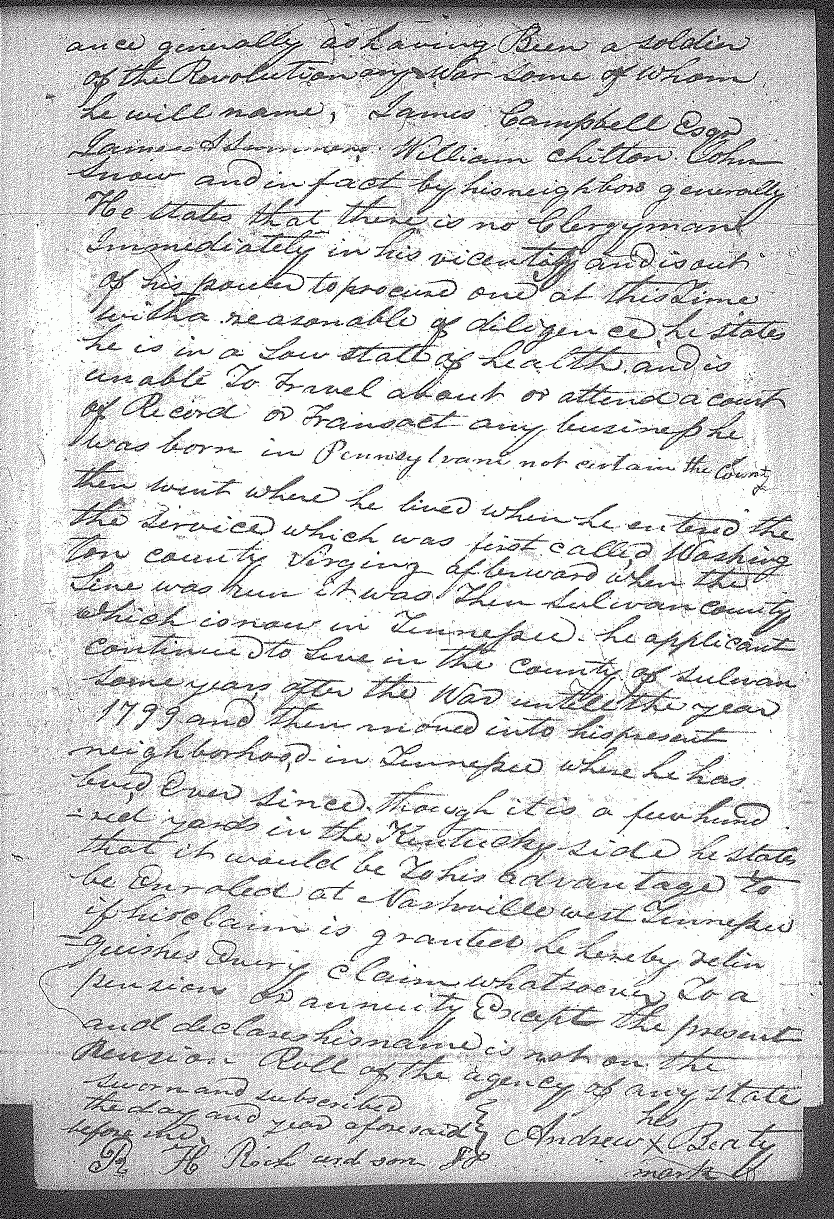 ance generally as having Been a soldier
of the Revolutionary War some of whom
he will name, James Campbell Esqr
James William Chitton John
Snow and in fact by his neighbors generally
He states that there is no Clergyman
immediately in his vicentity and is out
of his power to procure one at this Time
with a reasonable of diligence, he states
he is in a Low state of health and is
unable To Travel about or attend a court
of Record or Transact any business he
was born in Pennsylvani not certain the County
then went where he lived when he enterd the
the Service which was first called Washing
ton county Virginy afterward when the
Line was run it was Then Sulivan county
which is now in Tennessee. he applicant
continued to Live in the county of Sulivan
some years after the War untill the year
1799 and then moved into his present
neighborhood in Tennessee where he has
livid Ever since. though it is a few hund
-red yards in the Kentucky side he states
that it would be To his advantage To
be Enroled at Nashville west Tennessee
if his claim is granted he hereby relin
=quishes Every claim whatsoever To a
pension or annuity Except the present
and declares his name is not on the
Pension Roll of the agency of any state
sworn and subscribed
the day and year aforesaid
before me
his
Andrew X Beaty
mark